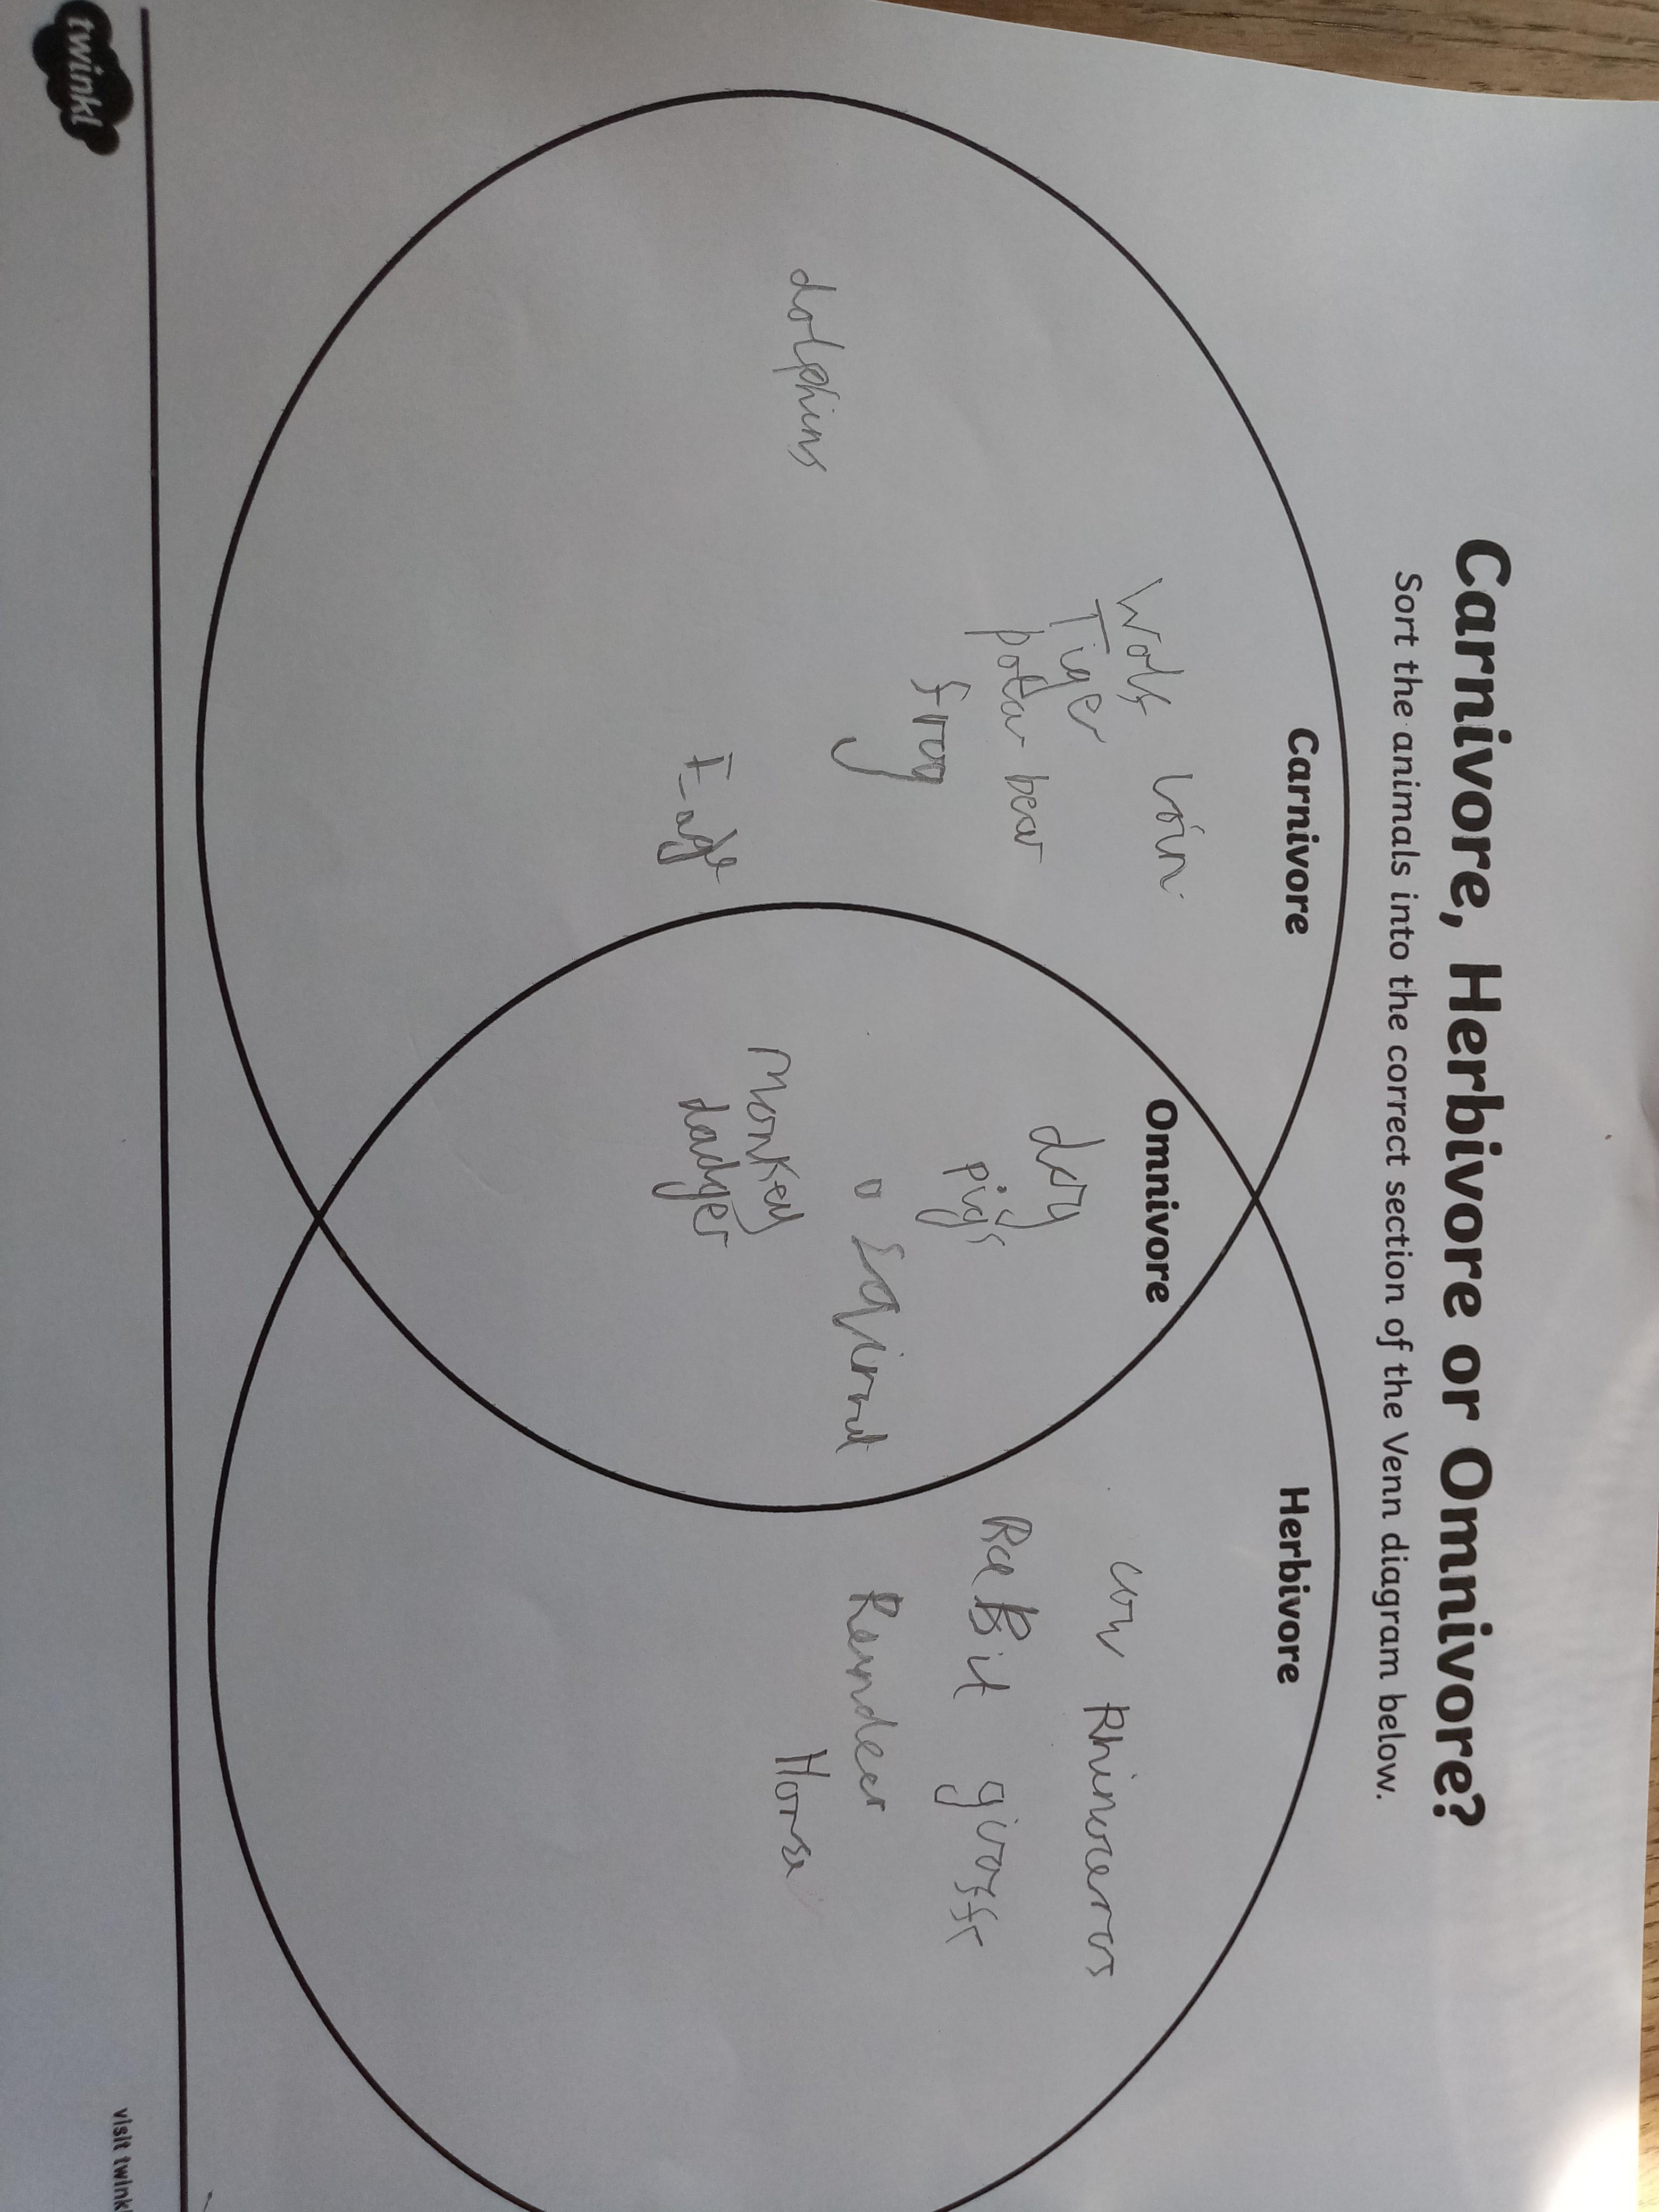 Carnivore, Herbivore or Omnivore?
Sort the animals into the correct section of the Venn diagram below.
Carnivore
Loin
Wolf
Tiger
polar bear
frog
Eagle
dolphins
Omnivore
dog
pigs
Monkey
dadger
Herbivore
cow Rhinoceros
RaBit giraffe
Reindeer
Horse
twinkl
visit twinkl